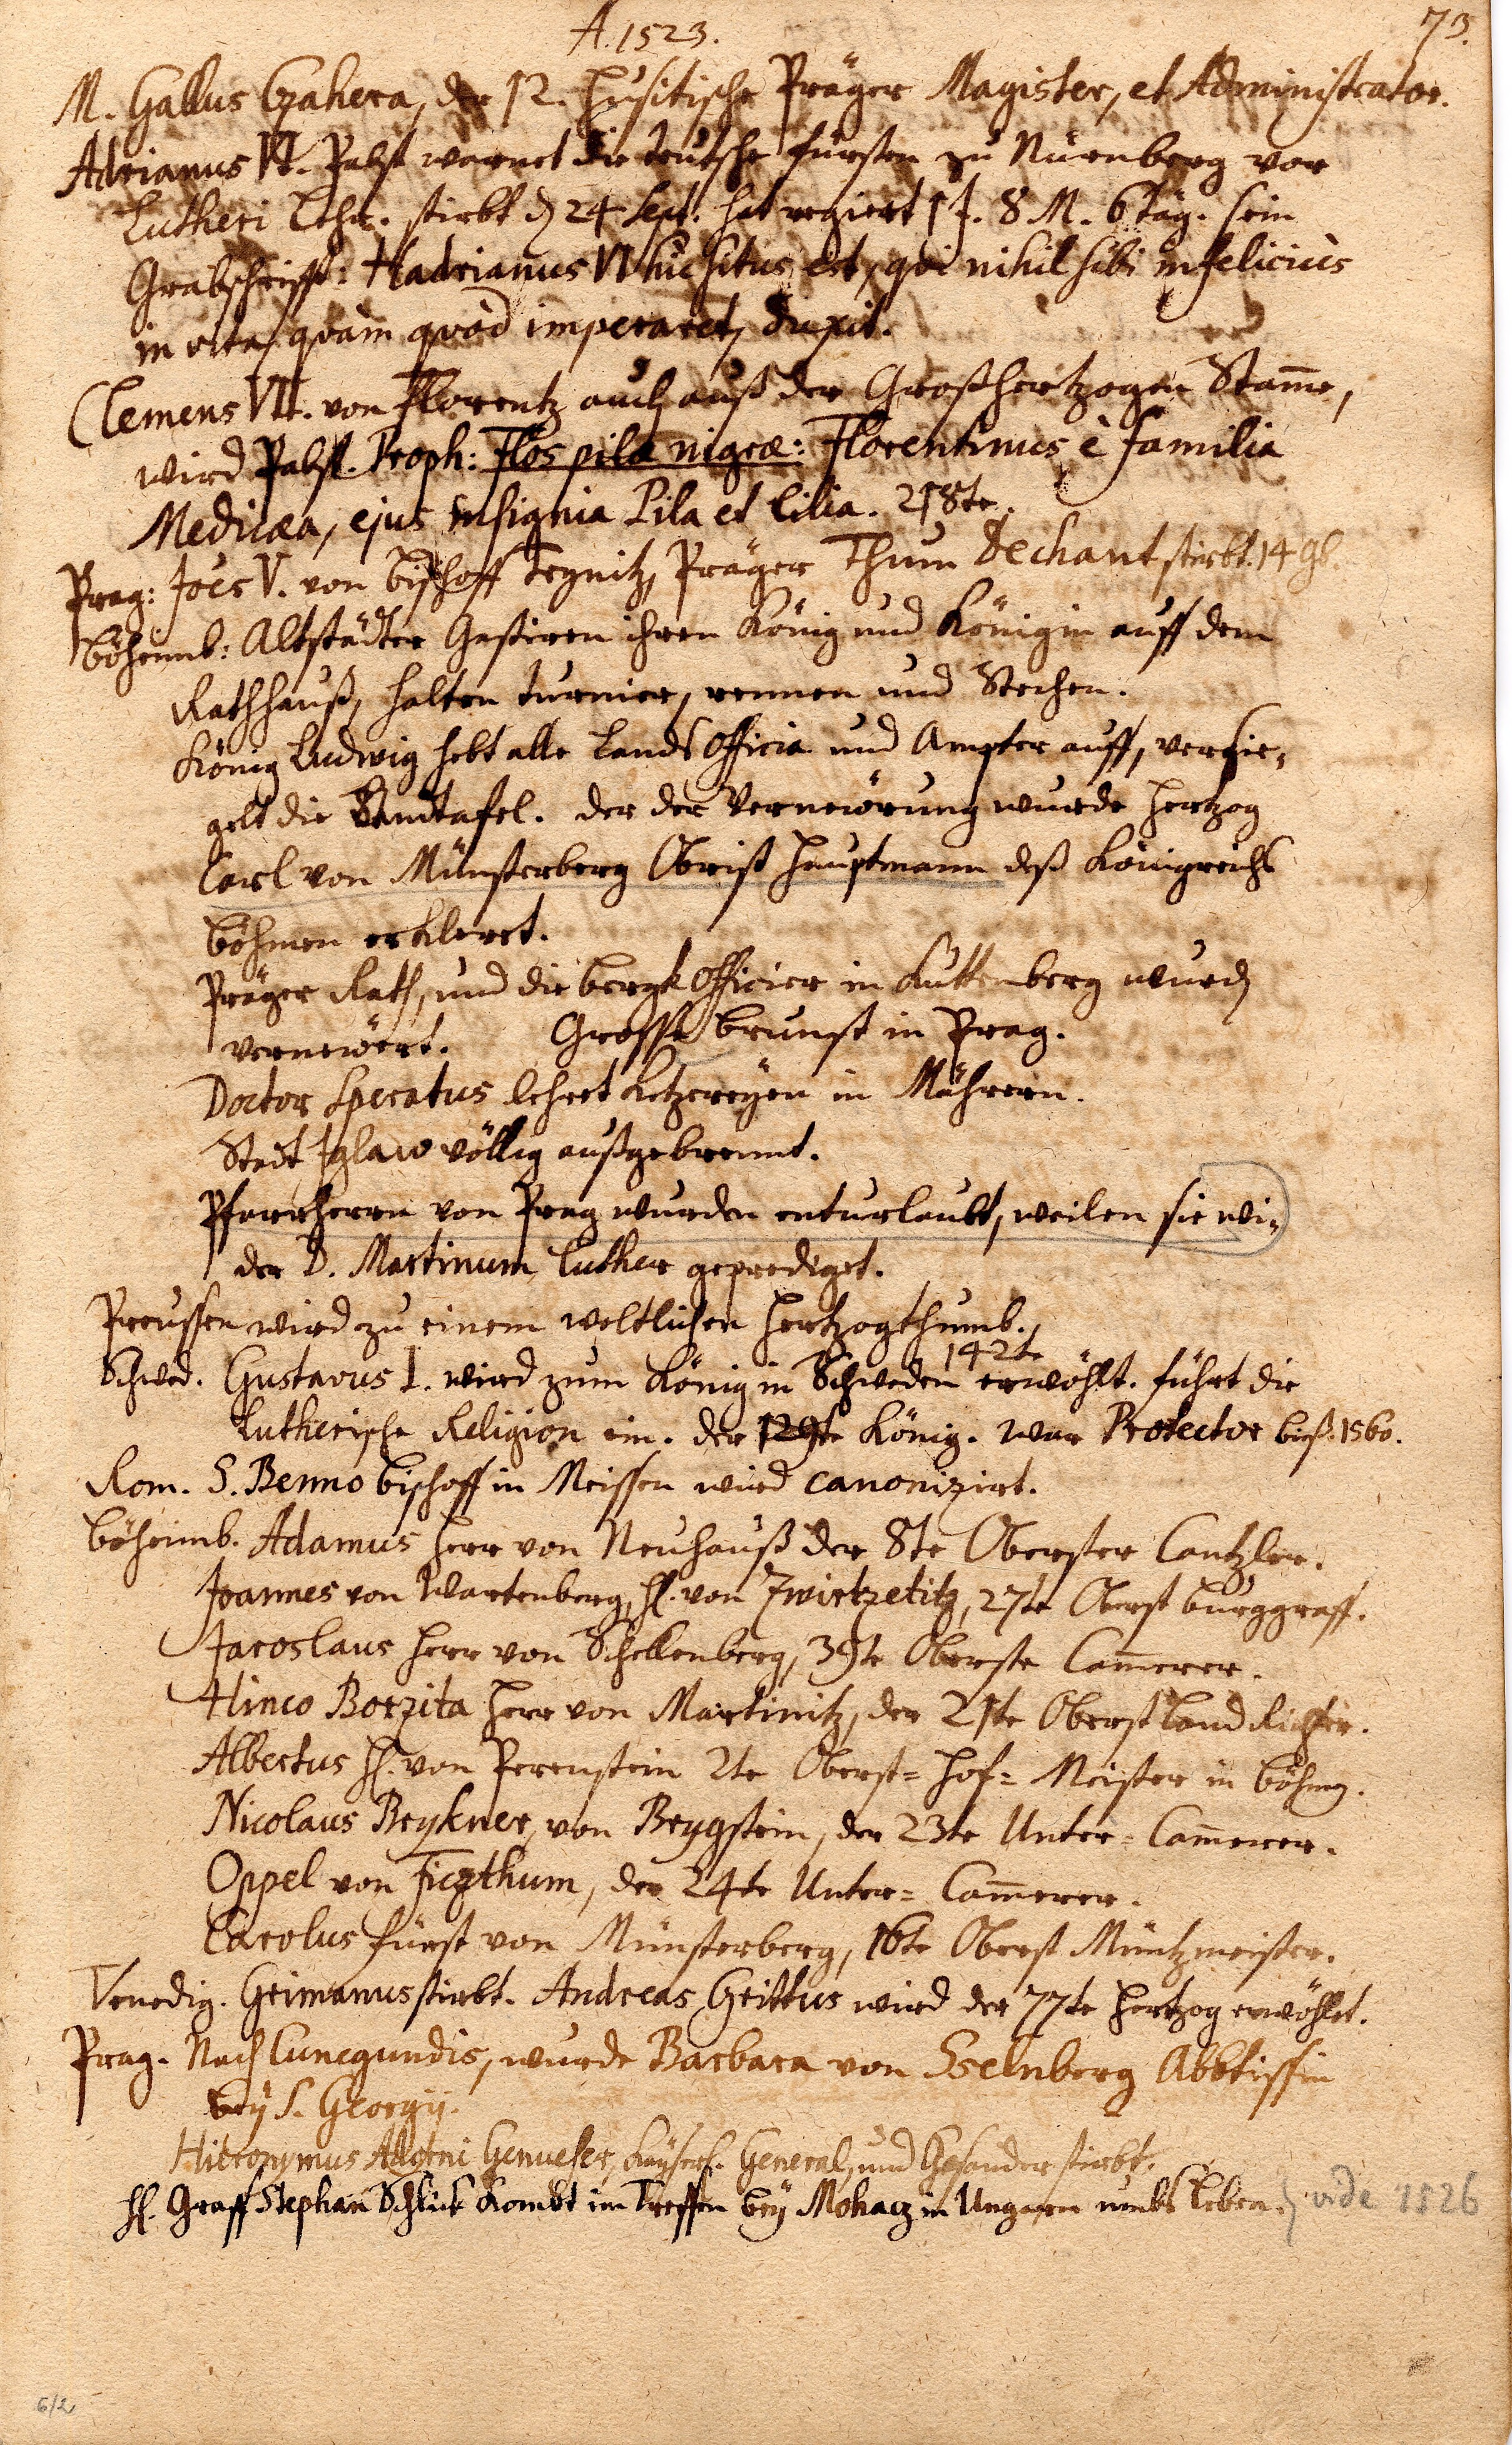 A. 1523.
73.
M. Gallus Czahera, der 12. Husitische Präger Magister, et Administrator.
Adrianus VI. Pabst warnet die teutsche fürsten zu Nürnberg vor
Lutheri Lehr. stirbt d 24 Sept. hat regiert 1 J. 8 M. 6 täg. sein
Grabschrifft: Hadrianus VI hic situs est, qvi nihil sibi infelicius
in vita, qvàm qvòd imperaret, duxit.
Clemens VII. von Florentz auch auß der Großhertzogen Stam̅e,
wird Pabst. Proph: Flos pilæ nigræ: Florentinus è familia
Medicæa, ejus insignia Pila et Lilia. 218te.
Prag: Joës V. von Bischoff Tegnitz, Präger Thum Dechant stirbt. 14 9b.
Böheimb: Altstädter Gastiren ihren König und Königin auff dem
Rathhauß, halten turnier, rennen und Stechen.
König Ludwig hebt alle Lands Officia und Ampter auff, versie-
gelt die Landtafel. der der Vernewörung wurde Hertzog
Carl von Münsterberg Obrist Hauptmann deß Königreichs
Böhmen erkleret.
Präger Rath, und die bergk Officier in Kuttenberg wurd
vernewert. Grosse brunst in Prag.
Doctor Speratus lehret Ketzereÿen in Mährern.
Stadt Iglaw völlig außgebrennt.
Pfarrherrn von Prag wurden enturlaubt, weilen sie wi-
der D. Martinum Luther geprediget.
Preussen wird zu einem weltlichen Hertzogthumb.
142te
Schwed. Gustavus I. wird zum König in Schweden erwöhlt. führt die
Lutherische Religion ein. der 129te König. war Protector biß. 1560.
Rom. S. Benno bischoff in Meissen wird canonizirt.
Böheimb. Adamus Herr von Neuhauß der 8te Oberster Cantzler.
Joannes von Wartenberg, H. von Zwirtzetitz, 27te Oberst burggraff.
Jaroslaus Herr von Schellenberg, 39te Oberste Cam̅erer.
Hinco Borzita Herr von Martinitz, der 21te Oberst Land Richter.
Albertus H. von Perenstein 2te Oberst= Hof= Meister in Böhmen.
Nicolaus Brykner, von Brygstein, der 23te Unter= Cam̅erer.
Oppel von Ficzthum, der 24te Unter= Cam̅erer.
Carolus Fürst von Münsterberg, 16te Oberst Müntzmeister.
Venedig. Grimanus stirbt. Andreas Grittus wird der 77te Hertzog erwöhlet.
Prag. Nach Cunegundis, wurde Barbara von Sselnberg Abbtissin
beÿ S. Georgij.
Hieronymus Adorni Genueser, Kaÿserl. General, und Gesander stirbt.
H. Graff Stephan Schlick kombt im Treffen beÿ Mohacz in Ungarn umbs Leben. vide 1526
6/2